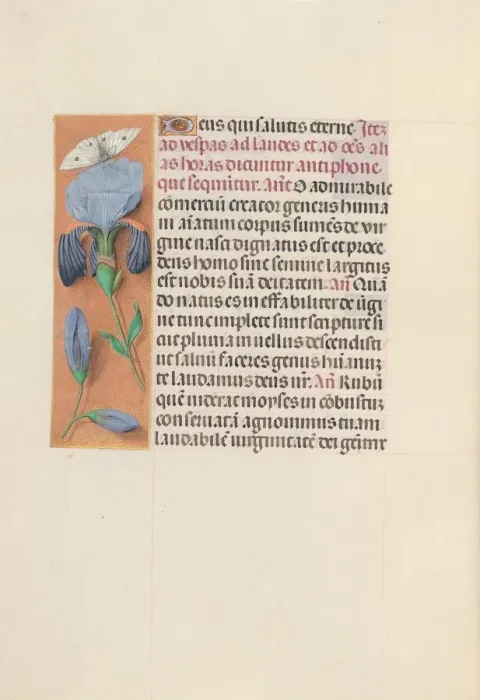 Deus qui salutis eterne. Itez
ad vespas ad laudes et ad oẽs ali
as horas dicuntur antiphone
que sequũtur. Añt O admirabile
cõmerciũ creator generis huma
ni aĩatum corpus sumẽs de vir
gine nasci dignatus est et proce
dens homo sine semine largitus
est nobis suã deitatem. Añ Quã
do natus es ineffabiliter de ũgi
ne tunc implete sunt scripture si
cut pluuia in uellus descendisti
ut saluũ faceres genus hũanuz
te laudamus deus nr̃. Añ Rubũ
quẽ uiderat moyses in cõbustuz
conseruatã agnouimus tuam
laudabilẽ uirginitatẽ dei genitrix